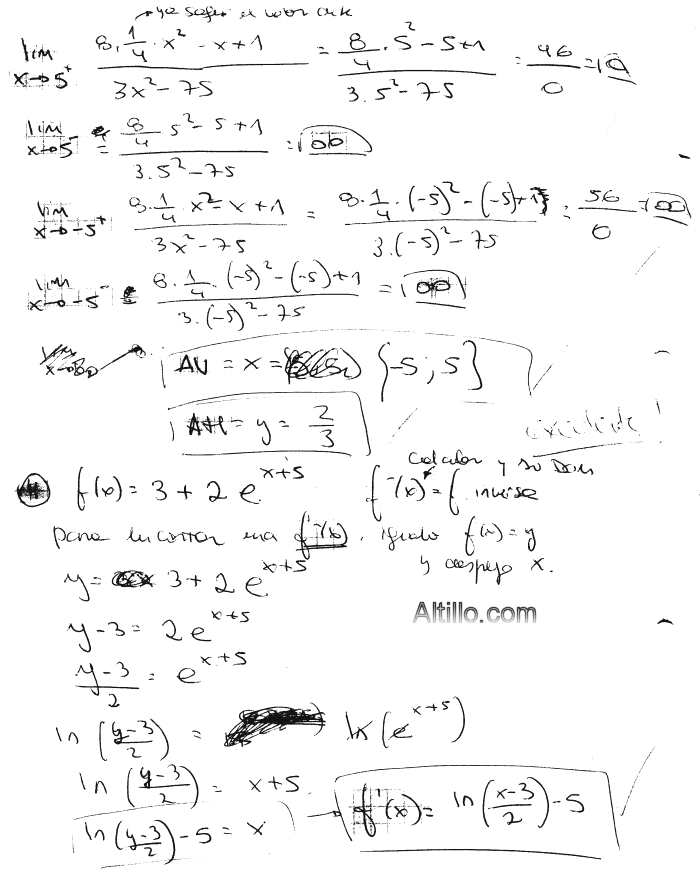 ya saque el valor de k
lim x→5⁺ (8·1/4·x² - x + 1)/(3x² - 75) = (8/4·5² - 5 + 1)/(3·5² - 75) = 46/0 = ∞
lim x→5⁻ = (8/4 5² - 5 + 1)/(3·5² - 75) = ∞
lim x→-5⁺ (8·1/4 x² - x + 1)/(3x² - 75) = (8·1/4·(-5)² - (-5) + 1)/(3·(-5)² - 75) = 56/0 = ∞
lim x→-5⁻ = (8·1/4·(-5)² - (-5) + 1)/(3·(-5)² - 75) = ∞
AV = x = {-5; 5}
AH = y = 2/3
excelente!
calcular y su Dom
f(x) = 3 + 2e^(x+5) f⁻¹(x) = f inversa
para encontrar una f⁻¹(x), igualo f(x) = y
y despejo x.
y = 3 + 2e^(x+5)
Altillo.com
y - 3 = 2e^(x+5)
(y-3)/2 = e^(x+5)
ln((y-3)/2) = ln(e^(x+5))
ln((y-3)/2) = x+5
ln((y-3)/2) - 5 = x → f⁻¹(x) = ln((x-3)/2) - 5